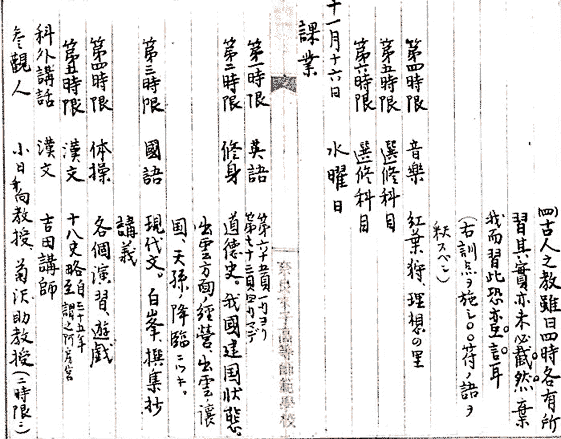 四古人之教雖曰四時各有所
習其實亦未必截然棄
我而習此恐亦言耳
(右訓点ヲ施シ〇〇符ノ語ヲ
釈スベシ)
第四時限 音樂 紅葉狩、理想の里
第五時限 選修科目
第六時限 選修科目
十一月十六日 水曜日
課業
第一時限 英語 第六十五頁一行ヨリ
第七十三頁四行マデ
第二時限 修身 道徳史。我國建国状態。
出雲方面ノ經營、出雲ノ讓
国、天孫ノ降臨ニツキ。
第三時限 國語 現代文。白峯、撰集抄
講義
第四時限 体操 各個演習、遊戯
第五時限 漢文 十八史略自三十五年
至謂之阿房宮
科外講話 漢文 吉田講師
参觀人 小日向教授、菊沢助教授(二時限ニ)
奈良女子高等師範學校